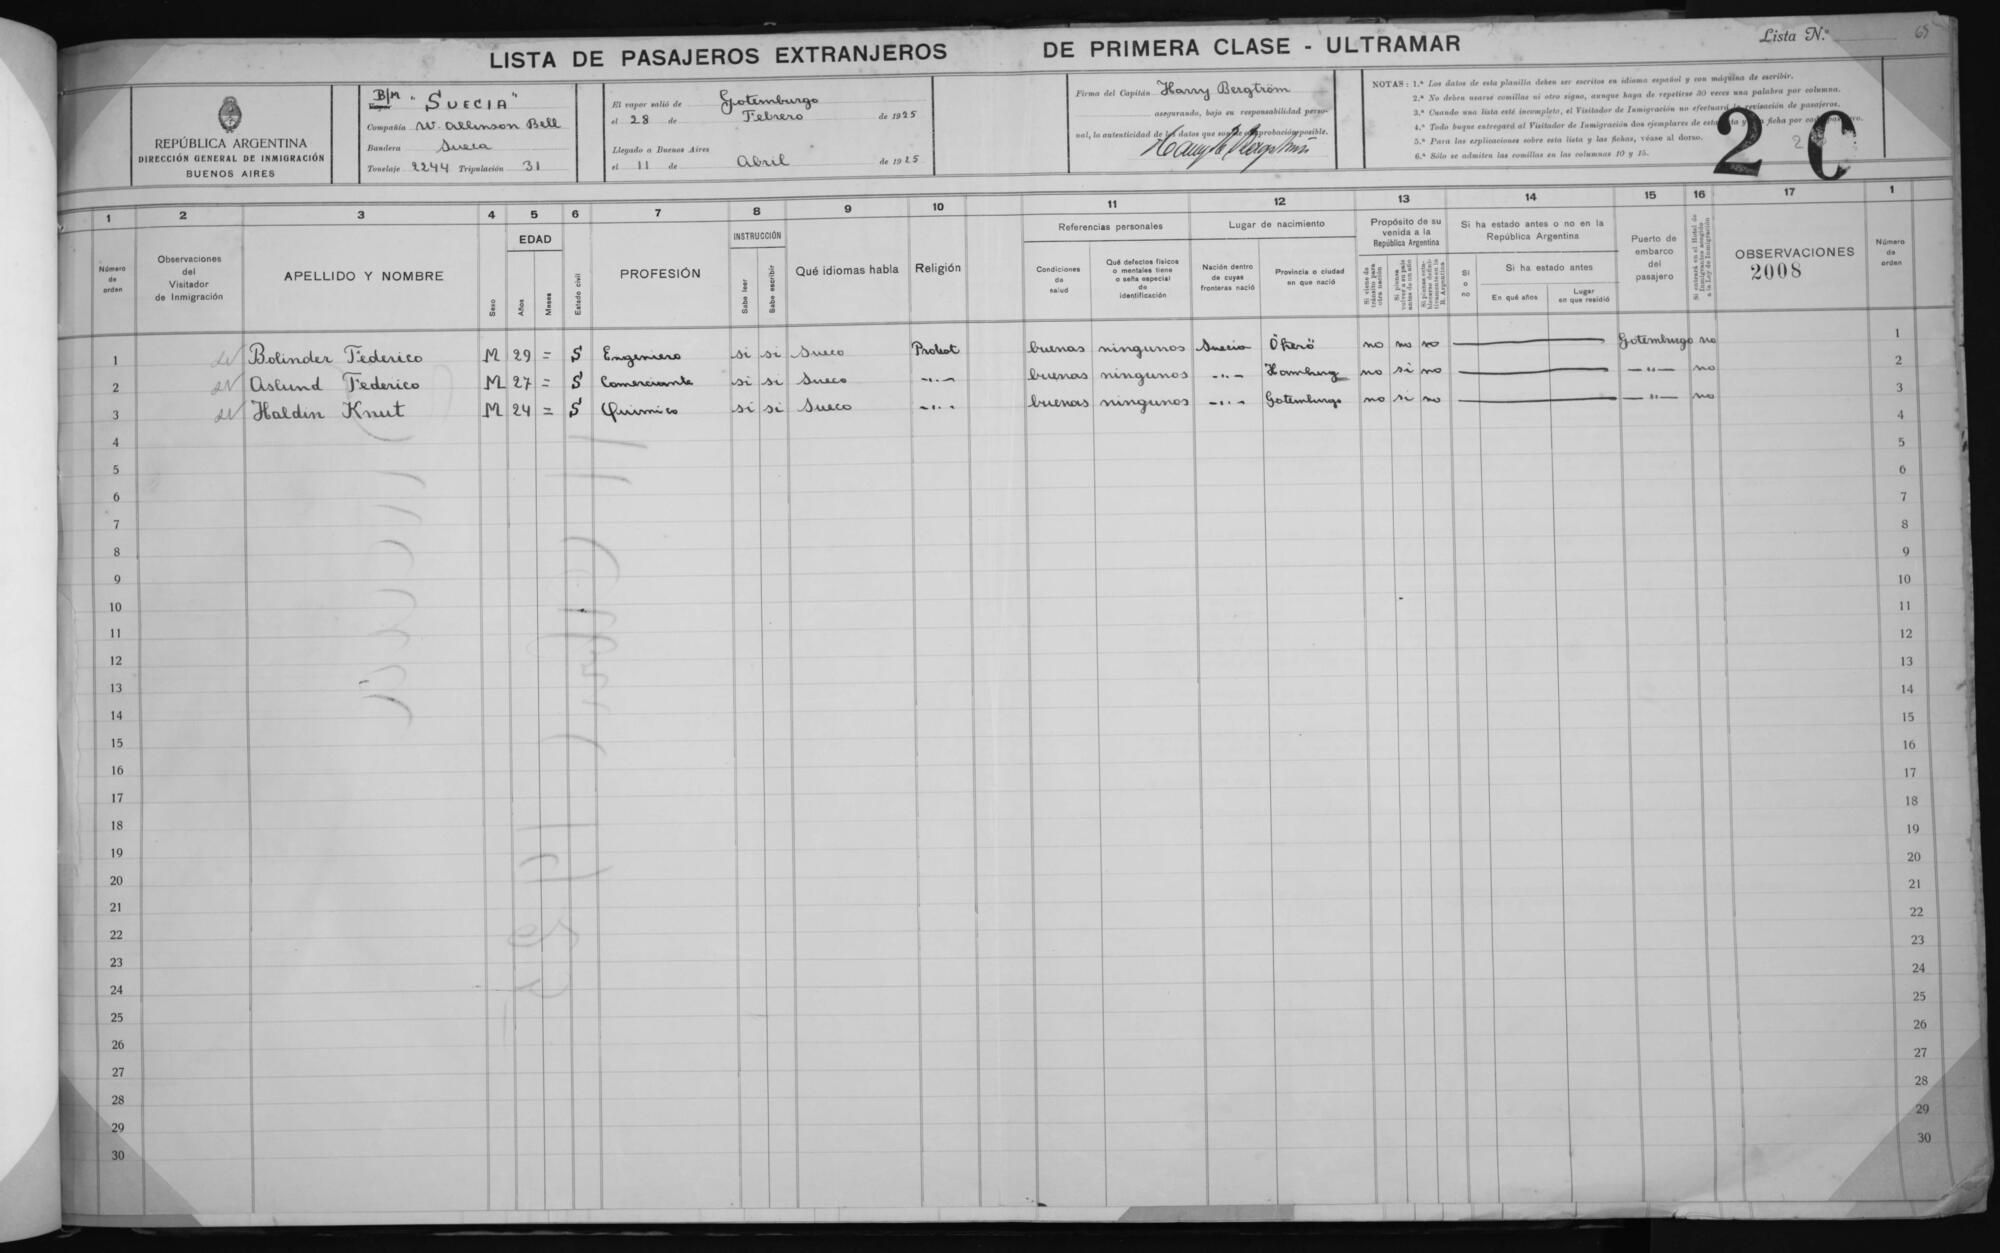 LISTA DE PASAJEROS EXTRANJEROS DE PRIMERA CLASE - ULTRAMAR
Lista N.º 65
REPÚBLICA ARGENTINA
DIRECCIÓN GENERAL DE INMIGRACIÓN
BUENOS AIRES
B/M "SUECIA"
Vapor
Compañía W. Allinson Bell
Bandera Sueca
Tonelaje 2244 Tripulación 31
El vapor salió de Gotemburgo
el 28 de Febrero de 1925
Llegado a Buenos Aires
el 11 de Abril de 1925
Firma del Capitán Harry Bergtröm
asegurando, bajo su responsabilidad perso-
nal, la autenticidad de los datos que son de comprobación posible.
NOTAS: 1.ª Los datos de esta planilla deben ser escritos en idioma español y con máquina de escribir.
2.ª No deben usarse comillas ni otro signo, aunque haya de repetirse 30 veces una palabra por columna.
3.ª Cuando una lista esté incompleta, el Visitador de Inmigración no efectuará la revisación de pasajeros.
4.ª Todo buque entregará al Visitador de Inmigración dos ejemplares de esta lista y una ficha por cada pasajero.
5.ª Para las explicaciones sobre esta lista y las fichas, véase al dorso.
6.ª Sólo se admiten las comillas en las columnas 10 y 15.
2 C
2
1 2 3 4 5 6 7 8 9 10 11 12 13 14 15 16 17 1
Número de orden
Observaciones del Visitador de Inmigración
APELLIDO Y NOMBRE
Sexo
EDAD
Años
Meses
Estado civil
PROFESIÓN
INSTRUCCIÓN
Sabe leer
Sabe escribir
Qué idiomas habla
Religión
Referencias personales
Condiciones de salud
Qué defectos físicos o mentales tiene o seña especial de identificación
Lugar de nacimiento
Nación dentro de cuyas fronteras nació
Provincia o ciudad en que nació
Propósito de su venida a la República Argentina
Si viene de tránsito para otra nación
Si piensa volver a su país antes de un año
Si piensa establecerse definitivamente en la R. Argentina
Si ha estado antes o no en la República Argentina
Si o no
Si ha estado antes
En qué años
Lugar en que residió
Puerto de embarco del pasajero
Si entrará en el Hotel de Inmigrantes acogido a la Ley de Inmigración
OBSERVACIONES
2008
Número de orden
1 Bolinder Federico M 29 = S Engeniero si si Sueco Protest buenas ningunos Suecia Ökerö no no no Gotemburgo no 1
2 Aslund Federico M 27 = S Comerciante si si Sueco -"- buenas ningunos -"- Hamberg no si no -"- no 2
3 Haldin Knut M 24 = S Quimico si si Sueco -"- buenas ningunos -"- Gotemburgo no si no -"- no 3
4 4
5 5
6 6
7 7
8 8
9 9
10 10
11 11
12 12
13 13
14 14
15 15
16 16
17 17
18 18
19 19
20 20
21 21
22 22
23 23
24 24
25 25
26 26
27 27
28 28
29 29
30 30